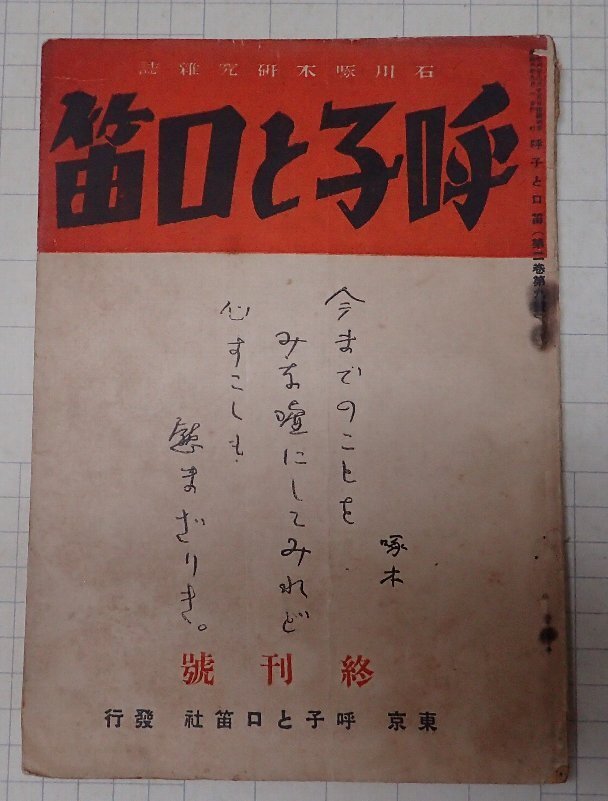 石川啄木研究雑誌
呼子と口笛
啄木
今までのことを
みな嘘にしてみれど
心すこしも
慰まざりき。
終刊號
東京 呼子と口笛社 發行
呼子と口笛（第二巻第